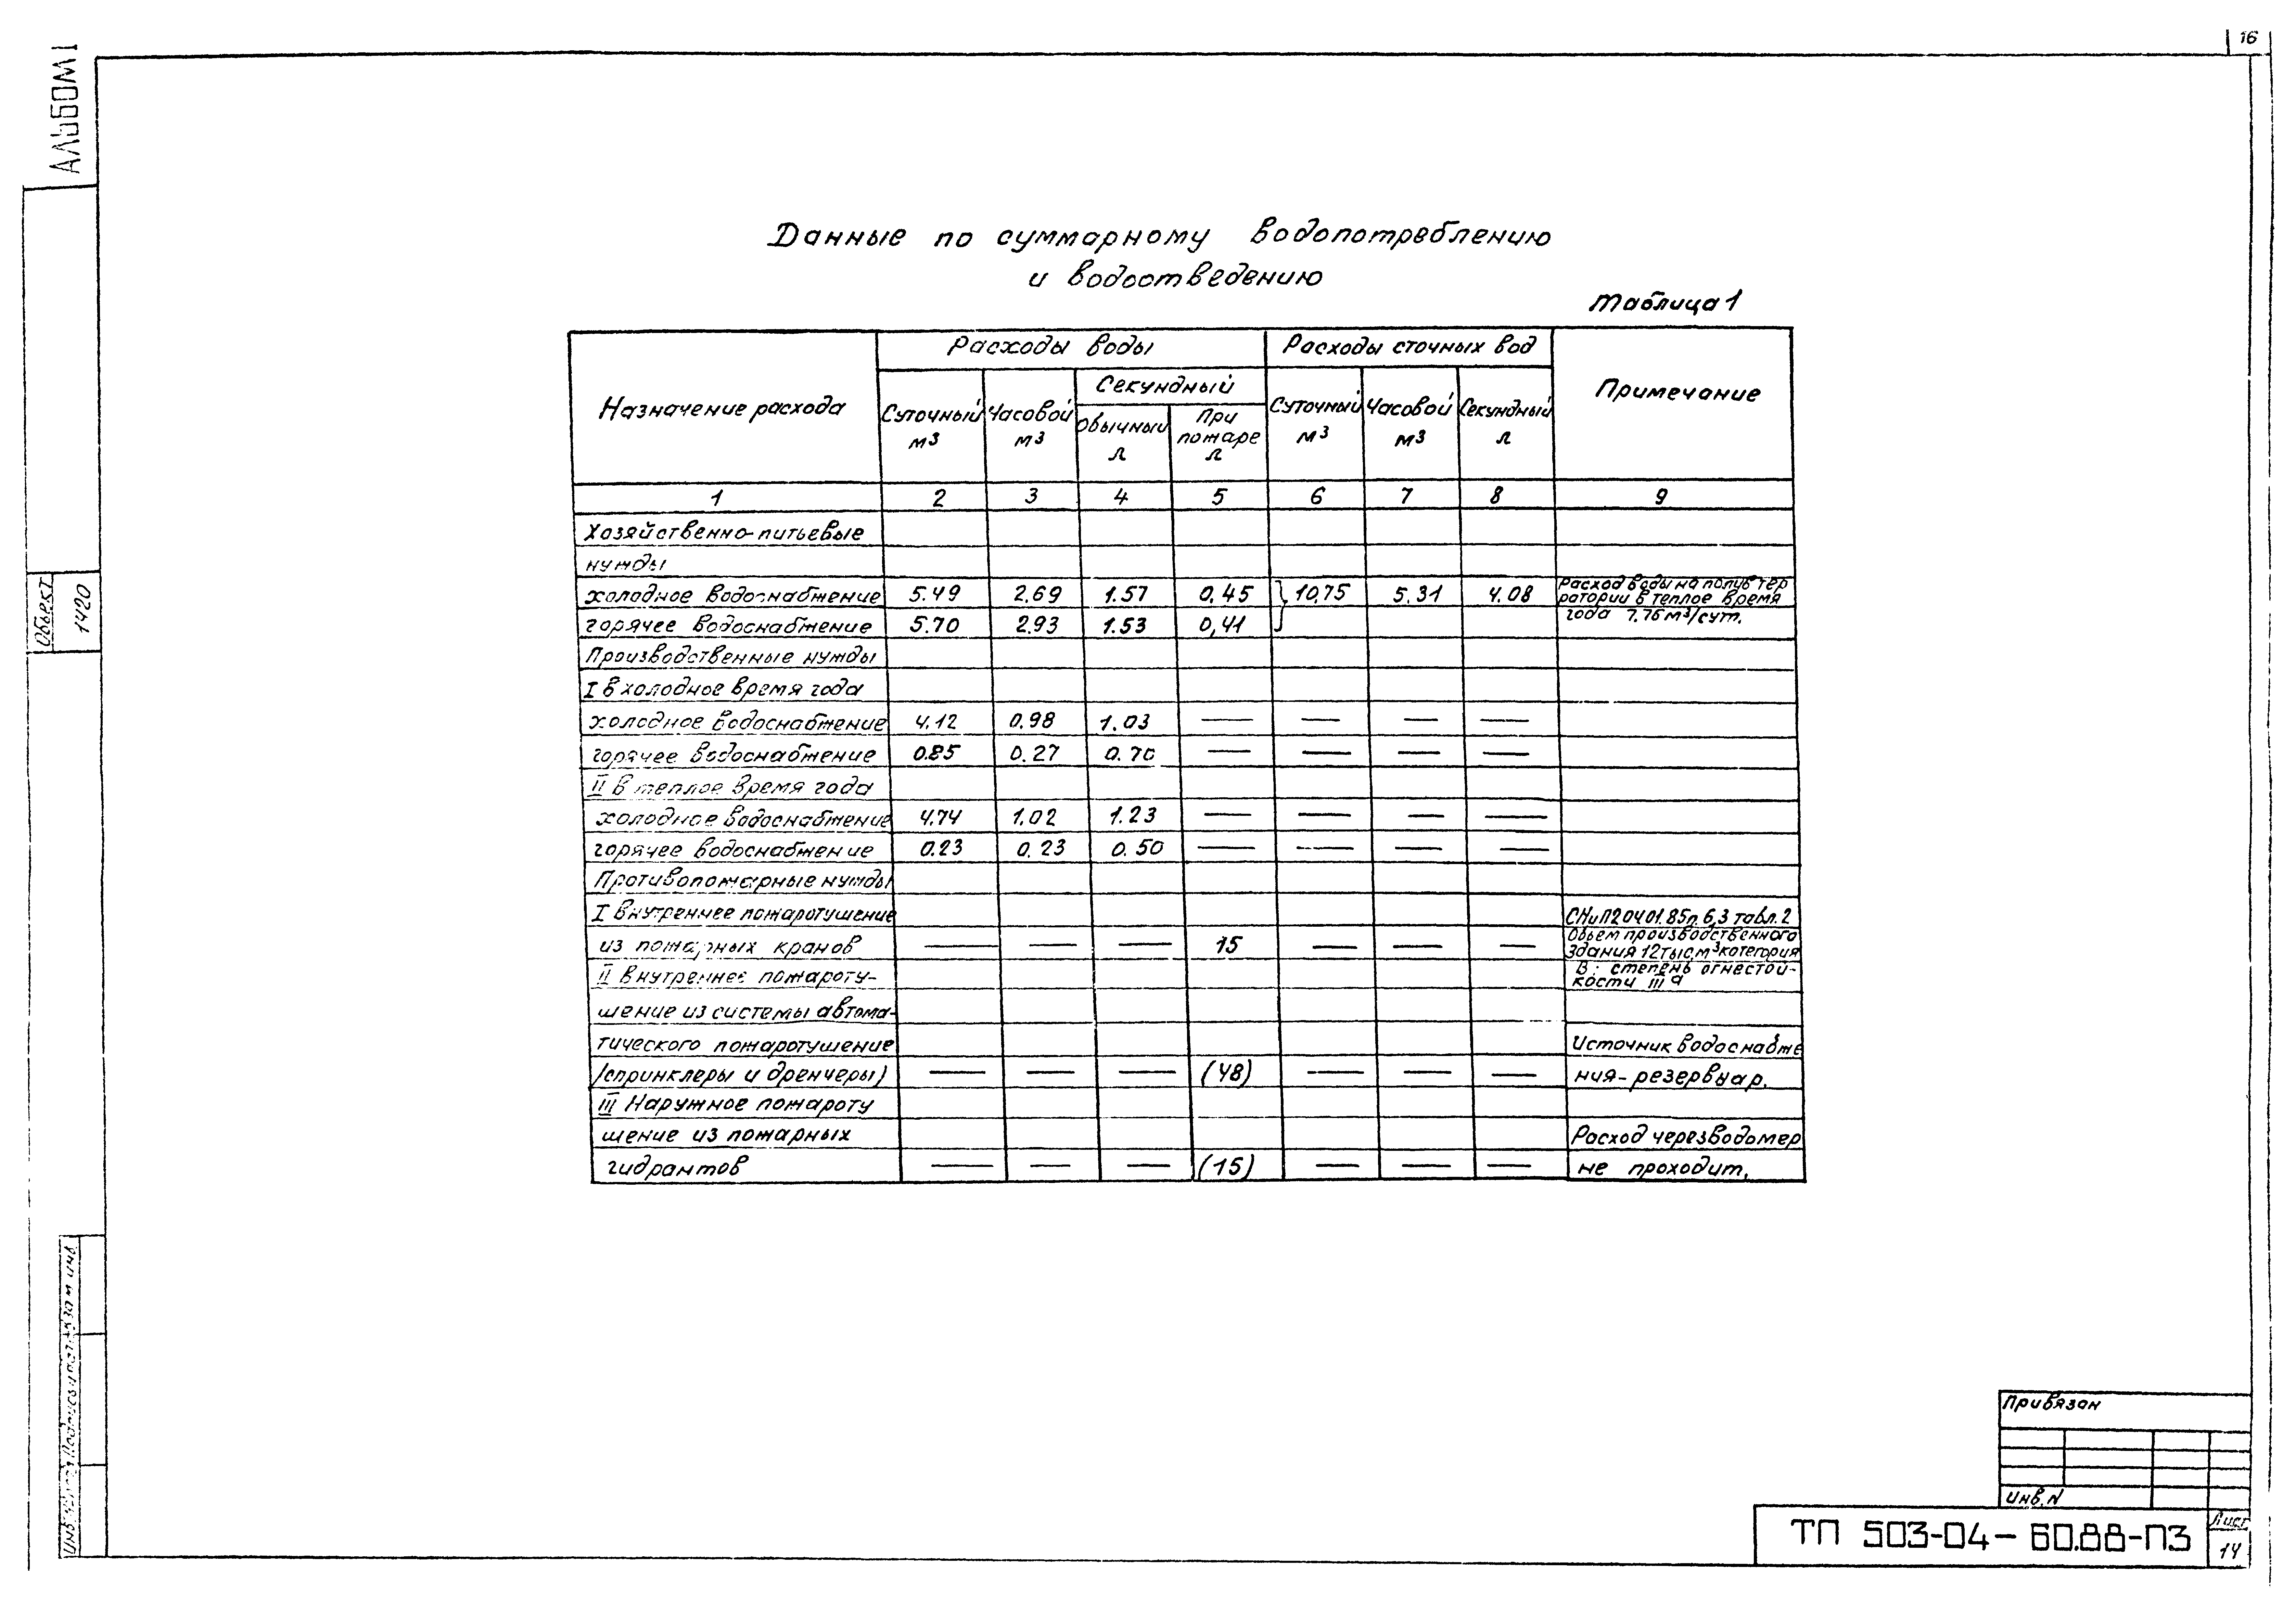 16
АЛЬБОМ 1
Данные по суммарному водопотреблению
и водоотведению
Таблица 1
Назначение расхода
Расходы воды
Расходы сточных вод
Примечание
Суточный м3
Часовой м3
Секундный
Обычный л
При пожаре л
Суточный м3
Часовой м3
Секундный л
1 2 3 4 5 6 7 8 9
Хозяйственно-питьевые
нужды
холодное водоснабжение 5.49 2.69 1.57 0,45 10,75 5.31 4.08 Расход воды на полив тер
ратории в теплое время
горячее водоснабжение 5.70 2.93 1.53 0,41 года 7.76 м3/сут.
Производственные нужды
I в холодное время года
холодное водоснабжение 4.12 0.98 1.03 — — — —
горячее водоснабжение 0.85 0.27 0.70 — — — —
II в теплое время года
холодное водоснабжение 4.74 1.02 1.23 — — — —
горячее водоснабжение 0.23 0.23 0.50 — — — —
Противопожарные нужды
I внутреннее пожаротушение СНиП2.04.01.85п.6,3 табл.2
Объем производственного
из пожарных кранов — — — 15 — — — здания 12тыс.м3 котегория
II внутреннее пожароту- В; степень огнестой-
кости IIIа
шение из системы автома-
тического пожаротушение Источник водоснабже
/спринклеры и дренчеры) — — — (48) — — — ния-резервуар.
III Наружное пожароту
шение из пожарных Расход через водомер
гидрантов — — — (15) — — — не проходит.
Объект
1420
Привязан
Инв.N
ТП 503-04-60.88-ПЗ
Лист
14